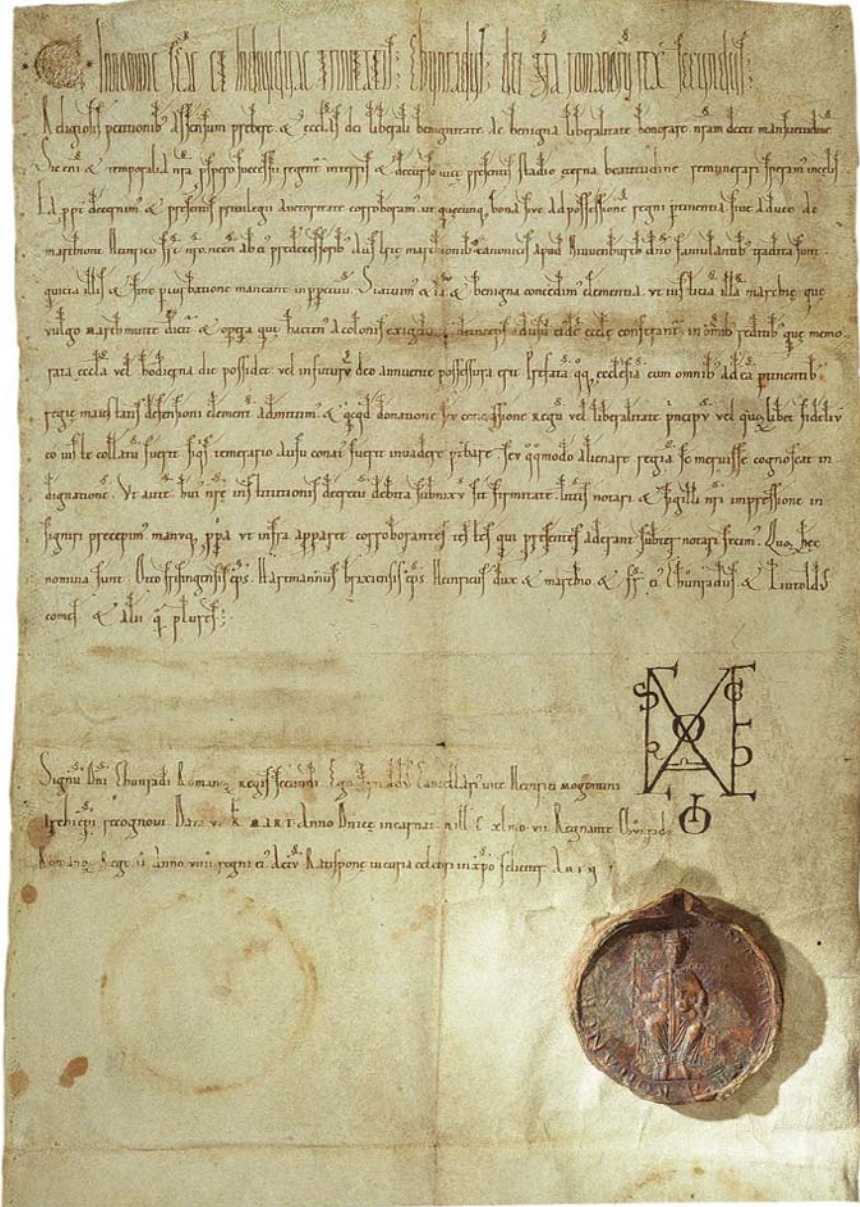 C In nomine sc̄ę et indiuiduę trinitatis. Chunradus dei gr̄a romanorū rex secundus.
Religiosis peticionib' assensum prebere. & ęccl̄as dei liberali benignitate ac benigna liberalitate honorare nr̄am decet mansuetudinē
Sic eni & temporalia nr̄a p̱spero successu regent̄ & decurso presentis stadio ęterna beatitudine remunerari speram' in cęlis
Ea ppt̄ decernim' & presentis priuilegii auctoritate corroboram' ut quęcunq, bona siue ad possessionē regni ptinentia siue a duce ac
marchione Heinrico frē nr̄o necn̄ ab ei' predecessorib' marchionib' canonicis apud Niwenburch dn̄o famulantib' tradita sunt
quieta illis & sine pturbatione maneant in ppetuū. Statuim' & & benigna concedim' clementia vt iusticia illa marchię quę
vulgo marchmutte dicit̄ & opera quę hacten' a colonis exigebant̄ deinceps ad usū eidē ęcclę conferant̄ in om̄ib redditib' quę memo
rata ęccl̄a vel hodierna die possidet vel in futurū deo annuente possessura erit. Prefata qq, ęcclesia cum omnib' ad eā ptinentib'
regię maiestatis defensioni clement̄ admittim' & qcqd donatione seu concessione regū vel liberalitate pncipū vel quorūlibet fideliū
eo iuste collatū fuerit siqs temerario ausu conat' fuerit inuadere pturbare seu qqmodo alienare regiā se meruisse cognoscat in
dignationē. Vt aut̄ hui' nr̄ę institutionis decretū debita subnixū sit firmitate litt̄is notari & sigilli nr̄i impressione in
signiri precepim' manuq, ppa vt infra apparet corroborantes testes qui presentes aderant subter notari fecim'. Quoꝝ hęc
nomina sunt. Otto frisingensis ep̄s. Hartmannus brixiensis ep̄s Heinricus dux & marchio & fr̄ ei' Chunradus & Liutoldus
comes & alii q̄ plures.
Signū Dn̄i Chunradi Romanoꝝ regis secundi. Ego cancellari' vice Heinrici mogontini
archiepi recognoui. Data v. k̄ MART. Anno Dn̄icę incarnat̄ mill̄ C. xl. vii. Regnante Chunrado
Romanoꝝ Rege ii Anno viiii regni ei' Ratisponę in curia celebri in xp̄o feliciter